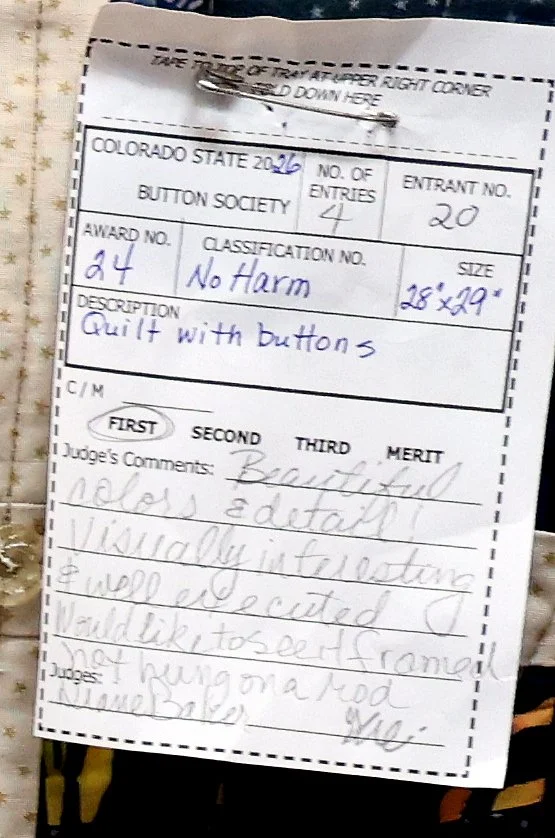 TAPE TO TOP OF TRAY AT UPPER RIGHT CORNER
FOLD DOWN HERE
COLORADO STATE 2026
BUTTON SOCIETY
NO. OF
ENTRIES
4
ENTRANT NO.
20
AWARD NO.
24
CLASSIFICATION NO.
No Harm
SIZE
28"x29"
DESCRIPTION
Quilt with buttons
C/M
FIRST SECOND THIRD MERIT
Judge's Comments: Beautiful
colors & detail!
Visually interesting
& well executed
Would like to see it framed
not hung on a rod
Judges:
Diane Baker